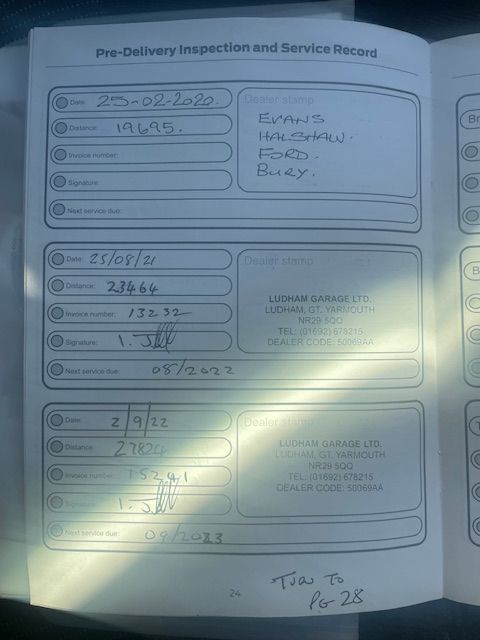 Pre-Delivery Inspection and Service Record
Date: 25-02-2020.
Dealer stamp
Distance: 19695.
EVANS
HALSHAW.
FORD.
BURY.
Invoice number:
Signature:
Next service due:
Date: 25/08/21
Dealer stamp
Distance: 23464
Invoice number: 13232
Signature:
LUDHAM GARAGE LTD.
LUDHAM, GT. YARMOUTH
NR29 5QQ
TEL: (01692) 678215
DEALER CODE: 50069AA
Next service due: 08/2022
Date: 2/9/22
Dealer stamp
Distance:
Invoice number: 15241
Signature:
LUDHAM GARAGE LTD.
LUDHAM, GT. YARMOUTH
NR29 5QQ
TEL: (01692) 678215
DEALER CODE: 50069AA
Next service due: 09/2023
24
TURN TO
PG 28